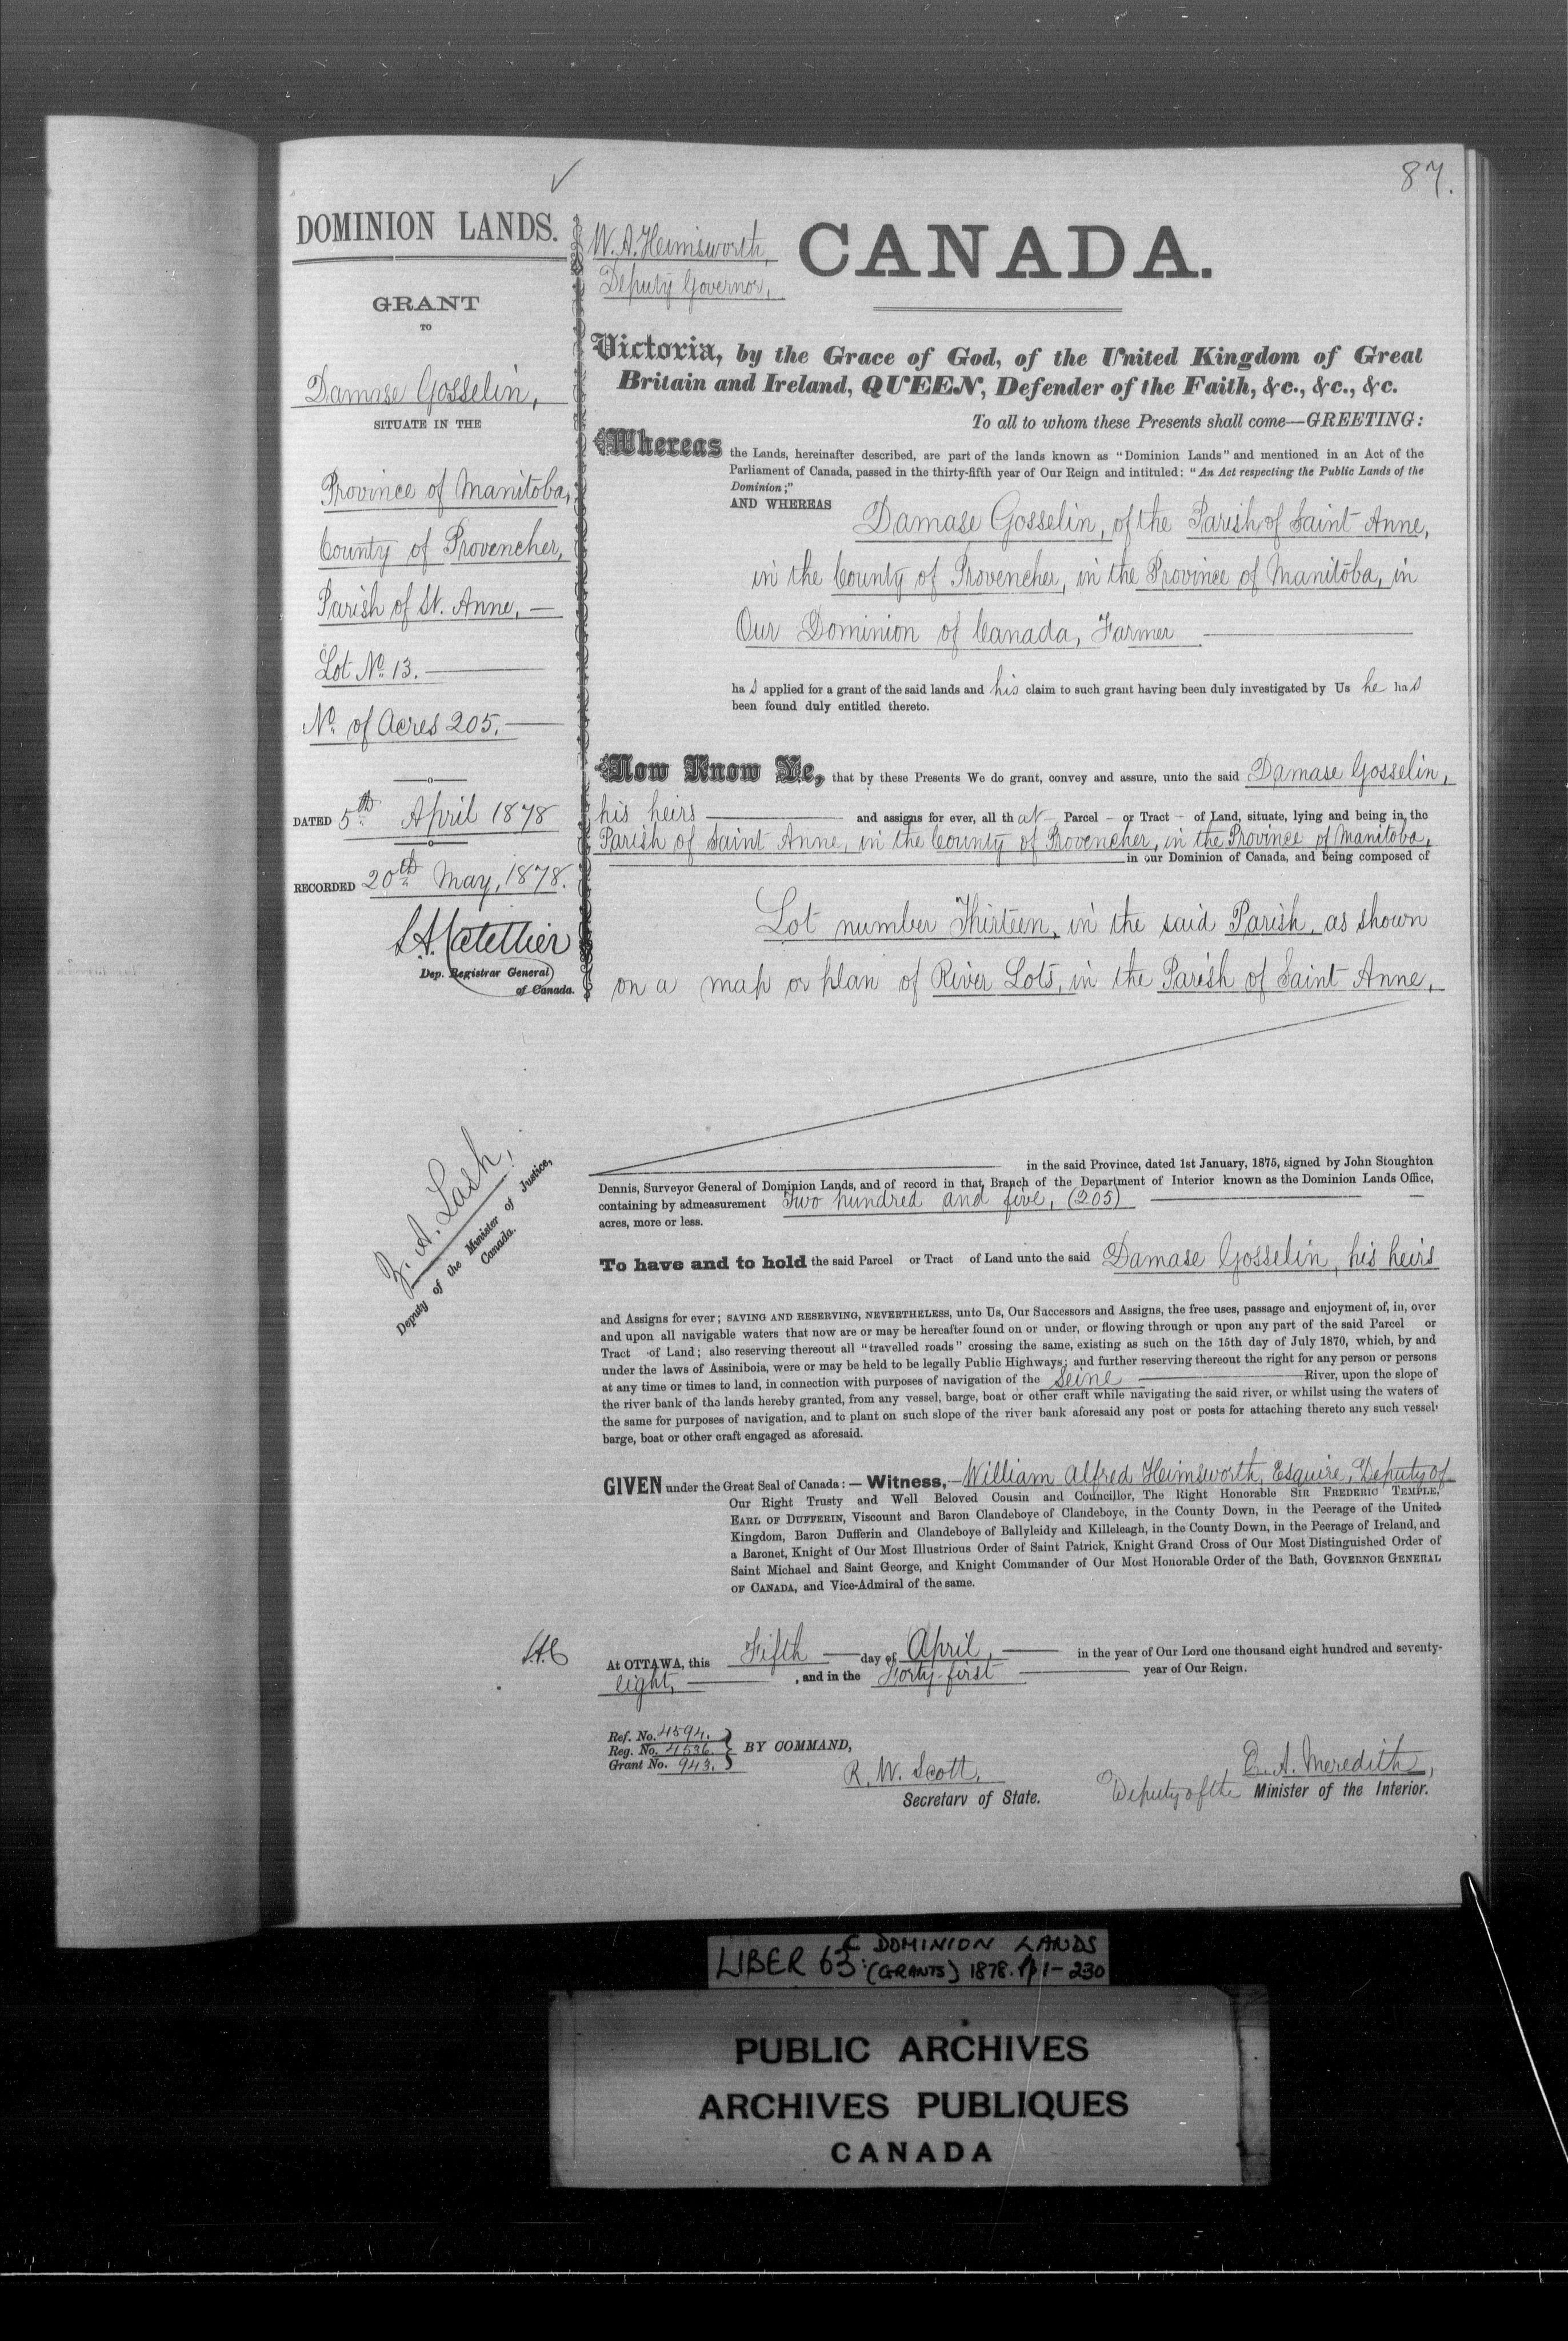 87.
DOMINION LANDS.
GRANT
TO
Damase Gosselin,
SITUATE IN THE
Province of Manitoba,
County of Provencher,
Parish of St. Anne, —
Lot No. 13. —
No. of Acres 205. —
DATED 5th April 1878
RECORDED 20th May, 1878.
Dep. Registrar General
of Canada.
Z. A. Lash,
Deputy of the Minister of Justice,
Canada.
W. A. Heimsworth,
Deputy Governor,
CANADA.
Victoria, by the Grace of God, of the United Kingdom of Great
Britain and Ireland, QUEEN, Defender of the Faith, &c., &c., &c.
To all to whom these Presents shall come—GREETING:
Whereas the Lands, hereinafter described, are part of the lands known as "Dominion Lands" and mentioned in an Act of the
Parliament of Canada, passed in the thirty-fifth year of Our Reign and intituled: "An Act respecting the Public Lands of the
Dominion;"
AND WHEREAS Damase Gosselin, of the Parish of Saint Anne,
in the County of Provencher, in the Province of Manitoba, in
Our Dominion of Canada, Farmer
has applied for a grant of the said lands and his claim to such grant having been duly investigated by Us he has
been found duly entitled thereto.
Now Know Ye, that by these Presents We do grant, convey and assure, unto the said Damase Gosselin,
his heirs — and assigns for ever, all that Parcel — or Tract — of Land, situate, lying and being in the
Parish of Saint Anne, in the County of Provencher, in the Province of Manitoba,
in our Dominion of Canada, and being composed of
Lot number Thirteen, in the said Parish, as shown
on a map or plan of River Lots, in the Parish of Saint Anne,
in the said Province, dated 1st January, 1875, signed by John Stoughton
Dennis, Surveyor General of Dominion Lands, and of record in that Branch of the Department of Interior known as the Dominion Lands Office,
containing by admeasurement Two hundred and five, (205) —
acres, more or less.
To have and to hold the said Parcel or Tract of Land unto the said Damase Gosselin, his heirs
and Assigns for ever; SAVING AND RESERVING, NEVERTHELESS, unto Us, Our Successors and Assigns, the free uses, passage and enjoyment of, in, over
and upon all navigable waters that now are or may be hereafter found on or under, or flowing through or upon any part of the said Parcel or
Tract of Land; also reserving thereout all "travelled roads" crossing the same, existing as such on the 15th day of July 1870, which, by and
under the laws of Assiniboia, were or may be held to be legally Public Highways; and further reserving thereout the right for any person or persons
at any time or times to land, in connection with purposes of navigation of the Seine — River, upon the slope of
the river bank of the lands hereby granted, from any vessel, barge, boat or other craft while navigating the said river, or whilst using the waters of
the same for purposes of navigation, and to plant on such slope of the river bank aforesaid any post or posts for attaching thereto any such vessel,
barge, boat or other craft engaged as aforesaid.
GIVEN under the Great Seal of Canada: — Witness, — William Alfred Heimsworth, Esquire, Deputy of
Our Right Trusty and Well Beloved Cousin and Councillor, The Right Honorable SIR FREDERIC TEMPLE,
EARL OF DUFFERIN, Viscount and Baron Clandeboye of Clandeboye, in the County Down, in the Peerage of the United
Kingdom, Baron Dufferin and Clandeboye of Ballyleidy and Killeleagh, in the County Down, in the Peerage of Ireland, and
a Baronet, Knight of Our Most Illustrious Order of Saint Patrick, Knight Grand Cross of Our Most Distinguished Order of
Saint Michael and Saint George, and Knight Commander of Our Most Honorable Order of the Bath, GOVERNOR GENERAL
OF CANADA, and Vice-Admiral of the same.
At OTTAWA, this Fifth — day of April, — in the year of Our Lord one thousand eight hundred and seventy-
eight, — , and in the Forty-first — year of Our Reign.
Ref. No. 4594.
Reg. No. 4536.
Grant No. 943.
BY COMMAND,
R. W. Scott,
Secretary of State.
E. A. Meredith,
Deputy of the Minister of the Interior.
LIBER 63: C DOMINION LANDS
(GRANTS) 1878. pp 1-230
PUBLIC ARCHIVES
ARCHIVES PUBLIQUES
CANADA